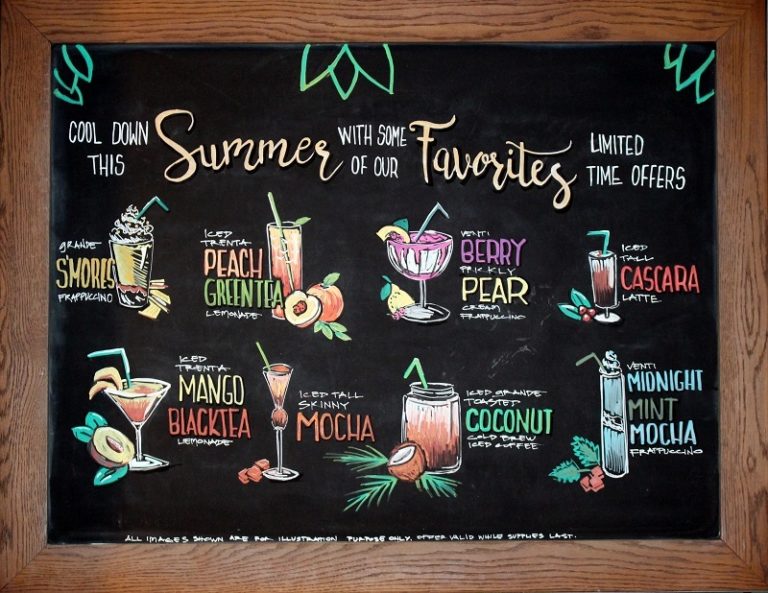 COOL DOWN
THIS
Summer
WITH SOME
OF OUR
Favorites
LIMITED
TIME OFFERS
GRANDE
S'MORES
FRAPPUCCINO
ICED
TRENTA
PEACH
GREEN TEA
LEMONADE
VENTI
BERRY
PRICKLY
PEAR
CREAM
FRAPPUCCINO
ICED
TALL
CASCARA
LATTE
ICED
TRENTA
MANGO
BLACK TEA
LEMONADE
ICED TALL
SKINNY
MOCHA
ICED GRANDE
TOASTED
COCONUT
COLD BREW
ICED COFFEE
VENTI
MIDNIGHT
MINT
MOCHA
FRAPPUCCINO
ALL IMAGES SHOWN ARE FOR ILLUSTRATION PURPOSE ONLY. OFFER VALID WHILE SUPPLIES LAST.